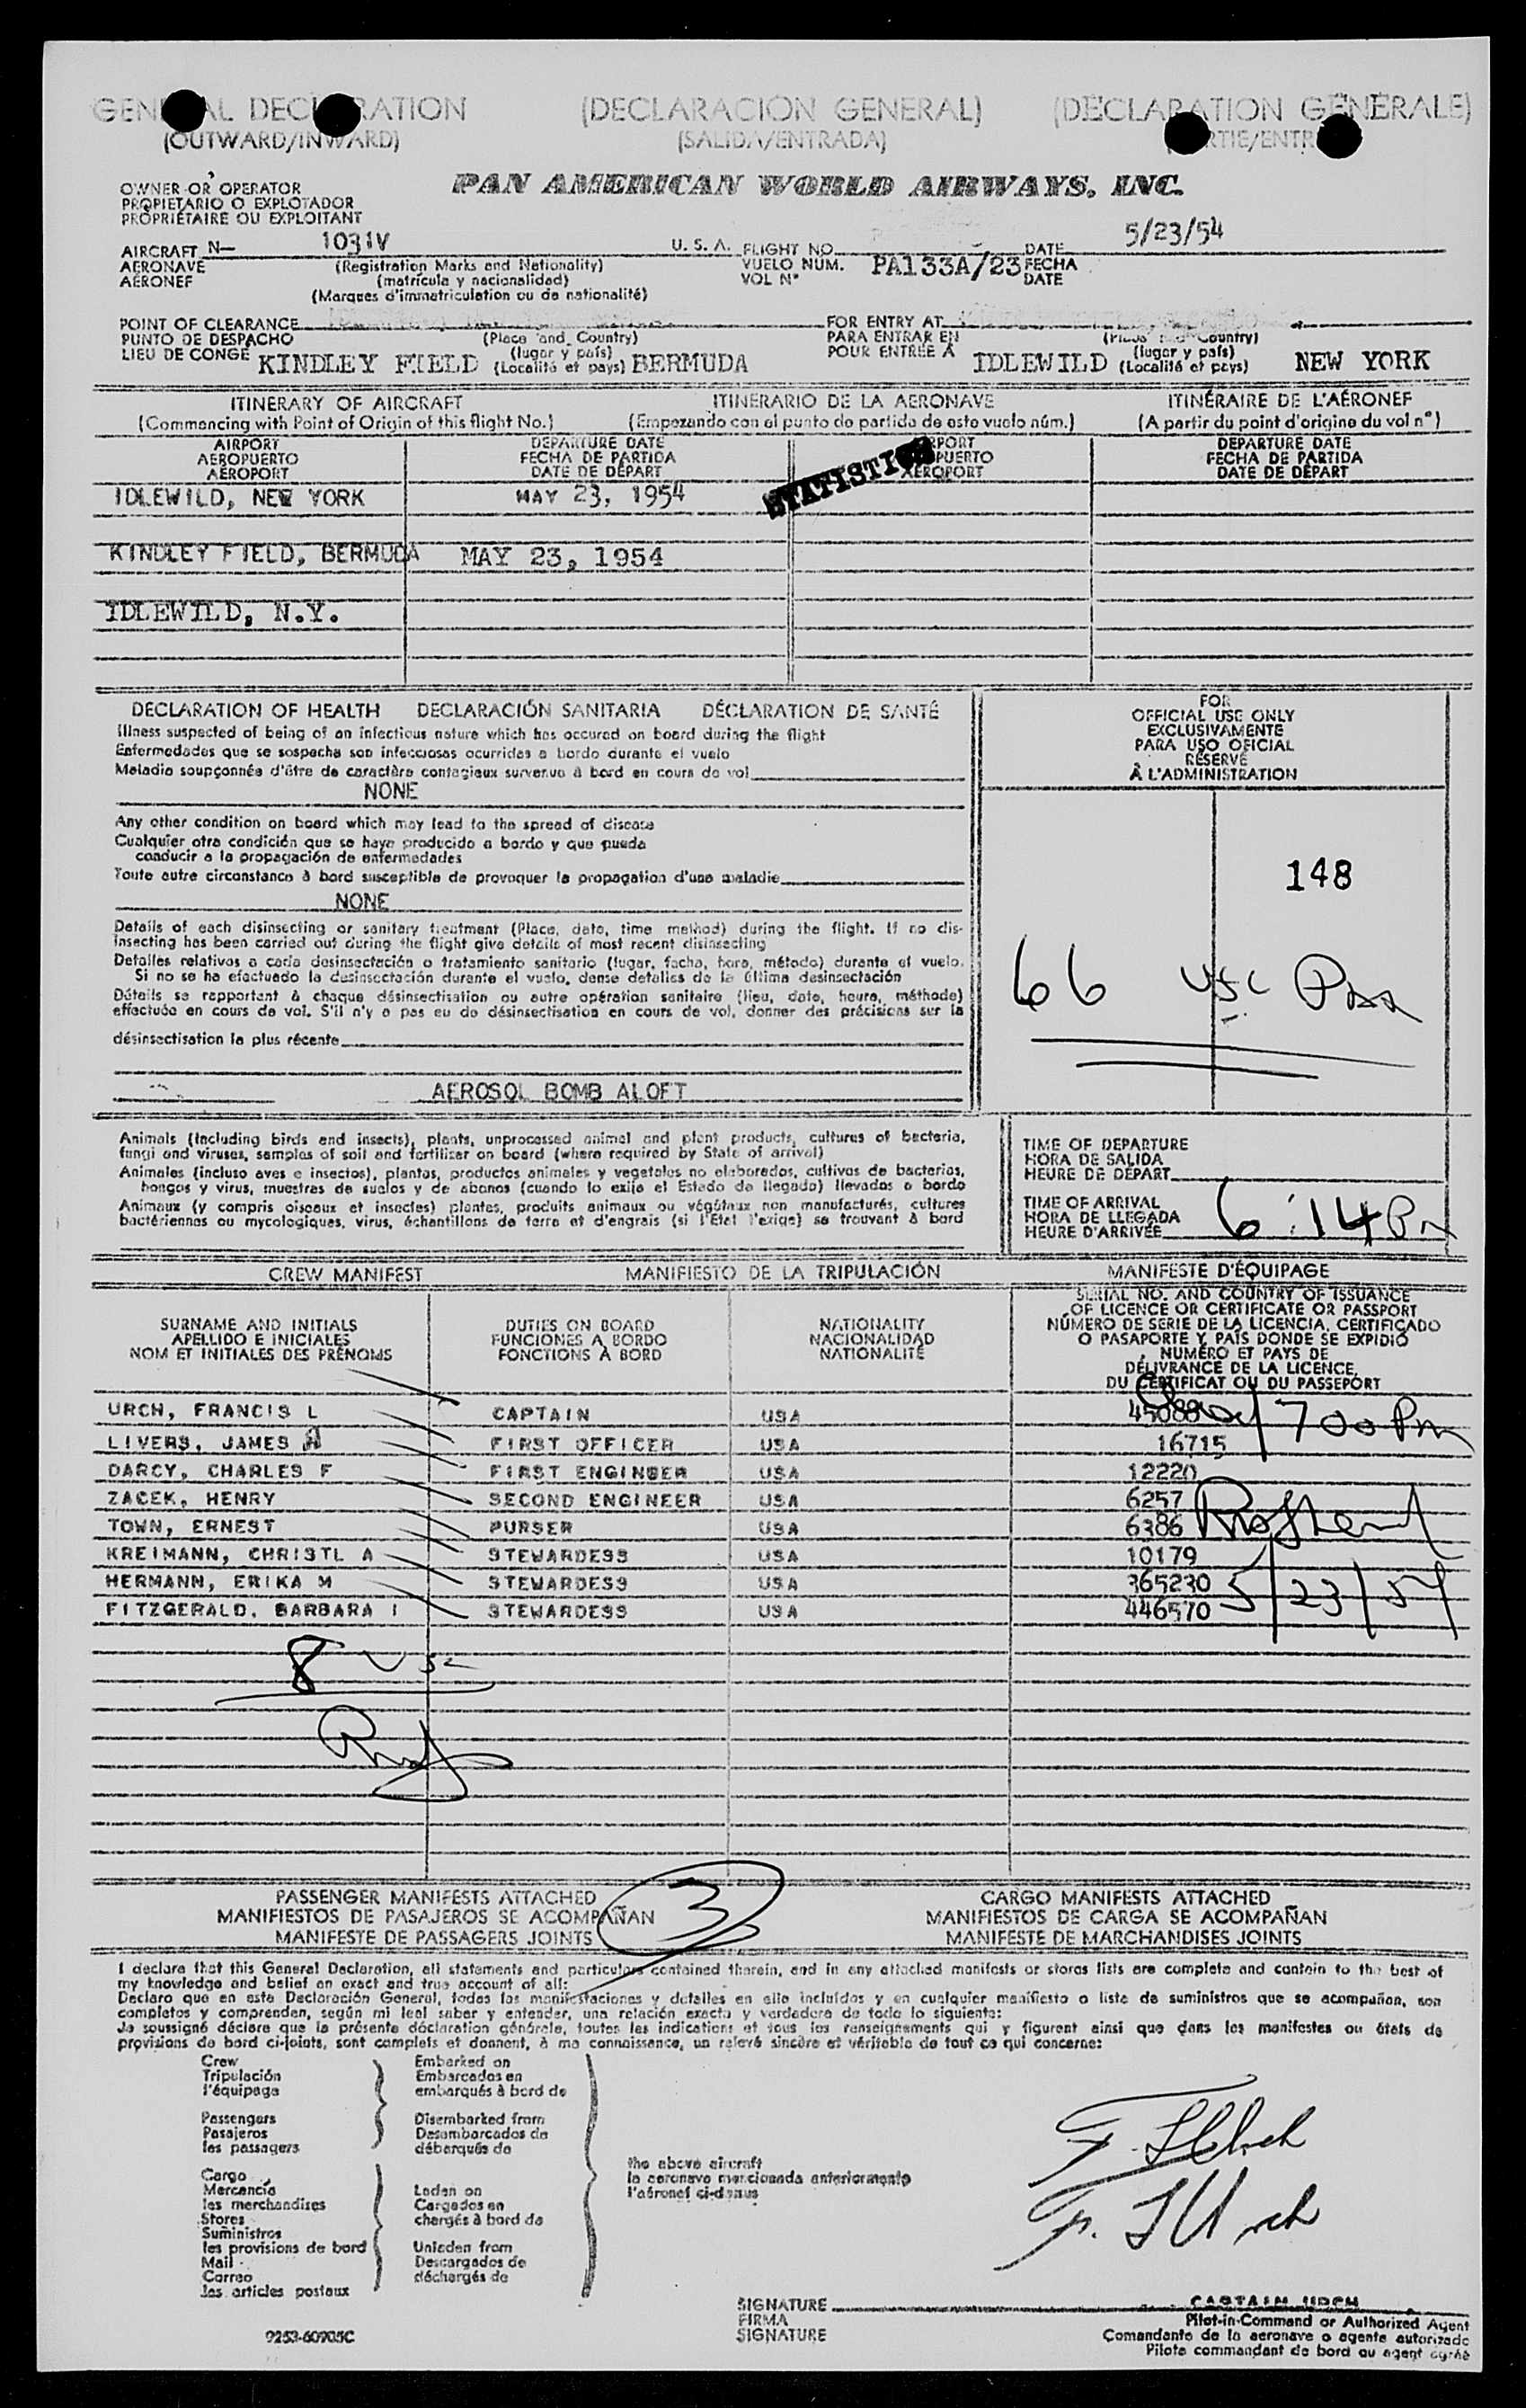 GENERAL DECLARATION (DECLARACIÓN GENERAL) (DÉCLARATION GÉNÉRALE)
(OUTWARD/INWARD) (SALIDA/ENTRADA)
OWNER OR OPERATOR
PROPIETARIO O EXPLOTADOR
PROPRIÉTAIRE OU EXPLOITANT
PAN AMERICAN WORLD AIRWAYS, INC.
AIRCRAFT N— 1031V U. S. A. FLIGHT NO. DATE 5/23/54
AERONAVE (Registration Marks and Nationality) VUELO NÚM. PA133A/23 FECHA
AÉRONEF (matrícula y nacionalidad) VOL N° DATE
(Marques d'immatriculation ou de nationalité)
POINT OF CLEARANCE FOR ENTRY AT
PUNTO DE DESPACHO (Place and Country) PARA ENTRAR EN (Place and Country)
LIEU DE CONGÉ (lugar y país) POUR ENTRÉE À (lugar y país)
KINDLEY FIELD (Localité et pays) BERMUDA IDLEWILD (Localité et pays) NEW YORK
ITINERARY OF AIRCRAFT ITINERARIO DE LA AERONAVE ITINÉRAIRE DE L'AÉRONEF
(Commencing with Point of Origin of this flight No.) (Empezando con el punto de partida de este vuelo núm.) (A partir du point d'origine du vol n°)
AIRPORT DEPARTURE DATE AIRPORT DEPARTURE DATE
AEROPUERTO FECHA DE PARTIDA AEROPUERTO FECHA DE PARTIDA
AÉROPORT DATE DE DÉPART AÉROPORT DATE DE DÉPART
IDLEWILD, NEW YORK MAY 23, 1954
KINDLEY FIELD, BERMUDA MAY 23, 1954
IDLEWILD, N.Y.
DECLARATION OF HEALTH DECLARACIÓN SANITARIA DÉCLARATION DE SANTÉ
Illness suspected of being of an infectious nature which has occured on board during the flight
Enfermedades que se sospecha son infecciosas ocurridas a bordo durante el vuelo
Maladie soupçonnée d'être de caractère contagieux survenue à bord en cours de vol
NONE
Any other condition on board which may lead to the spread of disease
Cualquier otra condición que se haya producido a bordo y que pueda
conducir a la propagación de enfermedades
Toute autre circonstance à bord susceptible de provoquer la propagation d'une maladie
NONE
Details of each disinsecting or sanitary treatment (Place, date, time method) during the flight. If no dis-
insecting has been carried out during the flight give details of most recent disinsecting
Detalles relativos a cada desinsectación o tratamiento sanitario (lugar, fecha, hora, método) durante el vuelo.
Si no se ha efectuado la desinsectación durante el vuelo, dense detalles de la última desinsectación
Détails se rapportant à chaque désinsectisation ou autre opération sanitaire (lieu, date, heure, méthode)
effectuée en cours de vol. S'il n'y a pas eu de désinsectisation en cours de vol, donner des précisions sur la
désinsectisation la plus récente
AEROSOL BOMB ALOFT
FOR
OFFICIAL USE ONLY
EXCLUSIVAMENTE
PARA USO OFICIAL
RÉSERVÉ
À L'ADMINISTRATION
148
66 USC Pax
Animals (including birds and insects), plants, unprocessed animal and plant products, cultures of bacteria,
fungi and viruses, samples of soil and fertilizer on board (where required by State of arrival)
Animales (incluso aves e insectos), plantas, productos animales y vegetales no elaborados, cultivos de bacterias,
hongos y virus, muestras de suelos y de abonos (cuando lo exija el Estado de llegada) llevados a bordo
Animaux (y compris oiseaux et insectes) plantes, produits animaux ou végétaux non manufacturés, cultures
bactériennes ou mycologiques, virus, échantillons de terre et d'engrais (si l'État l'exige) se trouvant à bord
TIME OF DEPARTURE
HORA DE SALIDA
HEURE DE DÉPART
TIME OF ARRIVAL
HORA DE LLEGADA
HEURE D'ARRIVÉE 6:14 Pm
CREW MANIFEST MANIFIESTO DE LA TRIPULACIÓN MANIFESTE D'ÉQUIPAGE
SURNAME AND INITIALS
APELLIDO E INICIALES
NOM ET INITIALES DES PRÉNOMS
DUTIES ON BOARD
FUNCIONES A BORDO
FONCTIONS À BORD
NATIONALITY
NACIONALIDAD
NATIONALITÉ
SERIAL NO. AND COUNTRY OF ISSUANCE
OF LICENCE OR CERTIFICATE OR PASSPORT
NÚMERO DE SERIE DE LA LICENCIA, CERTIFICADO
O PASAPORTE Y PAÍS DONDE SE EXPIDIÓ
NUMÉRO ET PAYS DE
DÉLIVRANCE DE LA LICENCE,
DU CERTIFICAT OU DU PASSEPORT
URCH, FRANCIS L CAPTAIN USA 45088 700 Pm
LIVERS, JAMES FIRST OFFICER USA 16715
DARCY, CHARLES F FIRST ENGINEER USA 12220
ZACEK, HENRY SECOND ENGINEER USA 6257
TOWN, ERNEST PURSER USA 6386
KREIMANN, CHRISTL A STEWARDESS USA 10179
HERMANN, ERIKA M STEWARDESS USA 365230 5/23/54
FITZGERALD, BARBARA I STEWARDESS USA 446570
8 USC
PASSENGER MANIFESTS ATTACHED CARGO MANIFESTS ATTACHED
MANIFIESTOS DE PASAJEROS SE ACOMPAÑAN 3 MANIFIESTOS DE CARGA SE ACOMPAÑAN
MANIFESTE DE PASSAGERS JOINTS MANIFESTE DE MARCHANDISES JOINTS
I declare that this General Declaration, all statements and particulars contained therein, and in any attached manifests or stores lists are complete and contain to the best of
my knowledge and belief an exact and true account of all:
Declaro que en esta Declaración General, todas las manifestaciones y detalles en ella incluídos y en cualquier manifiesto o lista de suministros que se acompañan, son
completos y comprenden, según mi leal saber y entender, una relación exacta y verdadera de todo lo siguiente:
Je soussigné déclare que la présente déclaration générale, toutes les indications et tous les renseignements qui y figurent ainsi que dans les manifestes ou états de
provisions de bord ci-joints, sont complets et donnent, à ma connaissance, un relevé sincère et véritable de tout ce qui concerne:
Crew Embarked on
Tripulación Embarcados en
l'équipage embarqués à bord de
Passengers Disembarked from
Pasajeros Desembarcados de
les passagers débarqués de
the above aircraft
la aeronave mencionada anteriormente
l'aéronef ci-dessus
Cargo
Mercancía Laden on
les merchandises Cargados en
Stores chargés à bord de
Suministros
les provisions de bord Unladen from
Mail Descargados de
Correo déchargés de
les articles postaux
F. L Urch
F. L Urch
CAPTAIN URCH
SIGNATURE
FIRMA
SIGNATURE
Pilot-in-Command or Authorized Agent
Comandante de la aeronave o agente autorizado
Pilote commandant de bord ou agent agréé
9253-60905C